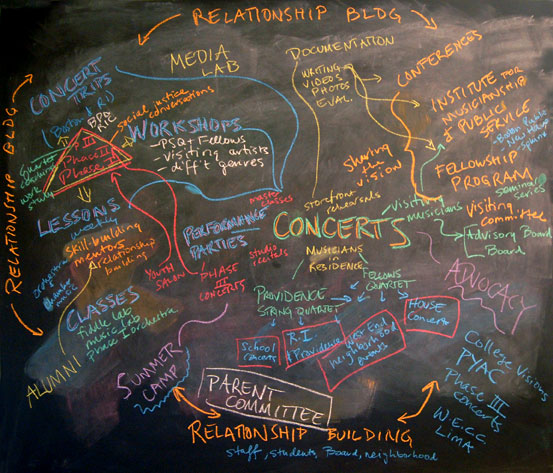 RELATIONSHIP BLDG
MEDIA
LAB
DOCUMENTATION
WRITING
VIDEOS
PHOTOS
EVAL.
CONFERENCES
CONCERT
TRIPS
(Boston + RI)
RELATIONSHIP BLDG
social justice
conversations
INSTITUTE FOR
MUSICIANSHIP
& PUBLIC
SERVICE
WORKSHOPS
- PSQ + Fellows
- visiting artists
- diff't genres
Phase II
Phase I
quartet
work
study
sharing
the
vision
FELLOWSHIP
PROGRAM
seminar
series
LESSONS
weekly
skill-building
mentors
relationship
building
master
classes
storefront
rehearsals
visiting
musicians
visiting
committee
PERFORMANCE
PARTIES
CONCERTS
Advisory Board
Board
orchestra
chamber
music
studio
recitals
MUSICIANS
IN
RESIDENCE
YOUTH
SALON
PHASE
III
CONCERTS
FELLOWS
QUARTET
ADVOCACY
CLASSES
fiddle lab
music +
Phase I orchestra
PROVIDENCE
STRING QUARTET
HOUSE
Concerts
School
concerts
R.I
& Providence
West End
neighborhood
events
ALUMNI
SUMMER
CAMP
PARENT
COMMITTEE
College Visions
PYAC
Phase III
concerts
W.E.C.C
LIMA
RELATIONSHIP BUILDING
staff, students, Board, neighborhood